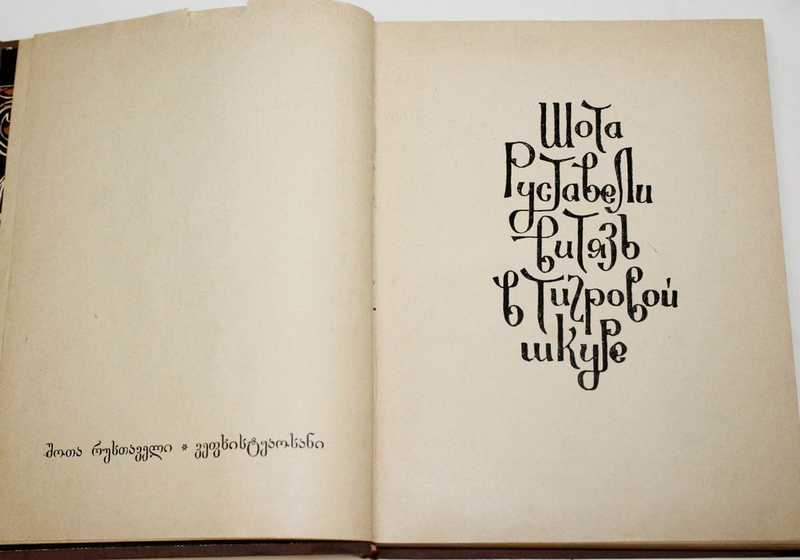 შოთა რუსთაველი * ვეფხისტყაოსანი
Шота
Руставели
витязь
в тигровой
шкуре